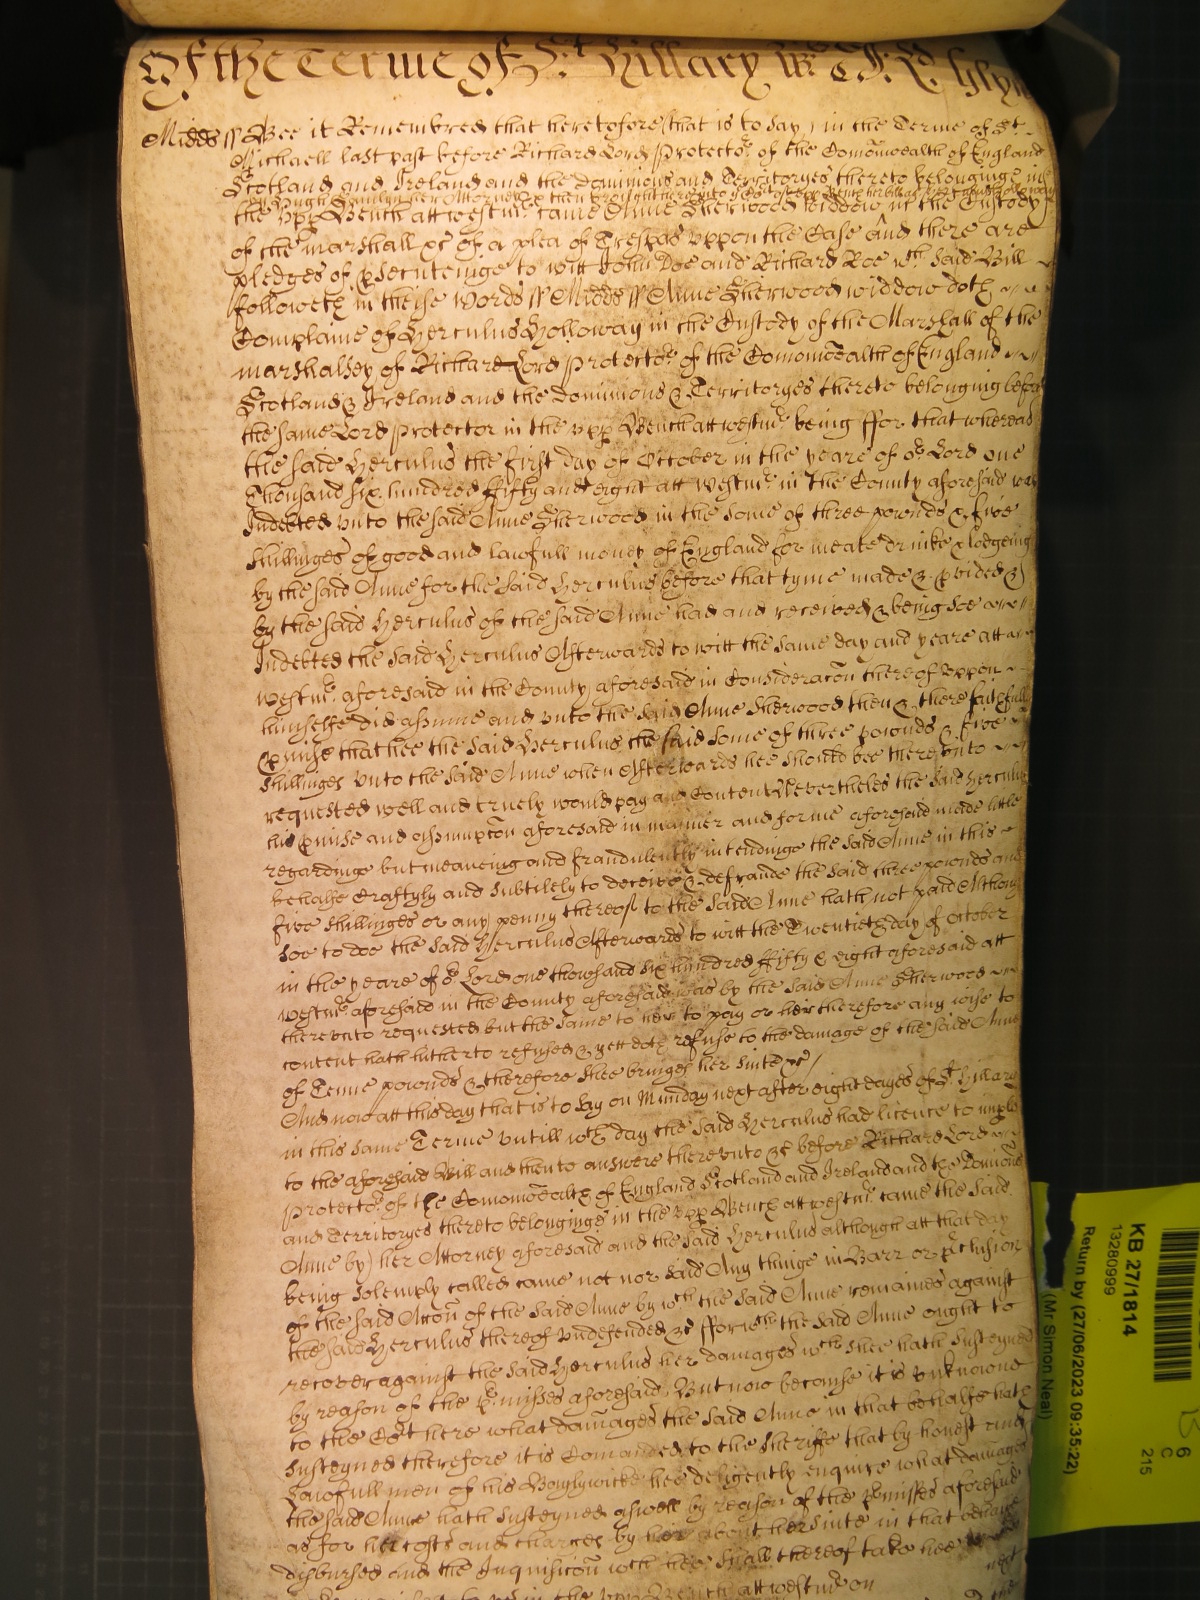 Of the Terme of St Hillary
Midds ss Bee it Remembred that heretofore (that is to say) in the Terme of St
Michaell last past before Richard Lord Protector of the Comonwealth of England
Scotland and Ireland and the dominions and Territoryes thereto belonginge in
the upp Bench att westmr came Anne Sherwood widdow in the Custody
of the marshall &c of a plea of Trespas uppon the Case And there are
pledges of psecuteinge to witt John Doe and Richard Roe wch said Bill
followeth in theise words ss Midds ss Anne Sherwood widdow doth
Complaine of Herculus Holloway in the Custody of the Marshall of the
marshalsey of Richard Lord Protector of the Comonwealth of England
Scotland & Ireland and the dominions & Territoryes thereto belonging before
the same Lord Protector in the upp Bench att westmr being ffor that whereas
the said Herculus the first day of October in the yeare of or Lord one
Thousand six hundred ffifty and eight att westmr in the County aforesaid was
Indebted unto the said Anne Sherwood in the some of three pounds & five
shillinges of good and lawfull money of England for meate drinke & lodgeing
by the said Anne for the said Herculus before that tyme made & pvided &
by the said Herculus of the said Anne had and received & being soe
Indebted the said Herculus Afterwards to witt the same day and yeare att
westmr aforesaid in the County aforesaid in Consideracon thereof uppon
himselfe did assume and unto the said Anne Sherwood then & there faithfully
pmise that hee the said Herculus the said some of three pounds & five
shillinges unto the said Anne when Afterwards hee should bee thereunto
requested well and truely would pay and Content Nevertheles the said Herculus
his pmise and assumpcon aforesaid in manner and forme aforesaid made little
regardinge but meaneing and fraudulently intendinge the said Anne in this
behalfe Craftyly and subtilely to deceive & defraude the said three pounds and
five shillinges or any penny thereof to the said Anne hath not paid Although
soe to doe the said Herculus Afterwards to witt the Twentieth day of October
in the yeare of or Lord one thousand six hundred ffifty & eight aforesaid att
westmr aforesaid in the County aforesaid was by the said Anne Sherwood
thereunto requested but the same to her to pay or her therefore any wise to
content hath hitherto refused & yett doth refuse to the damage of the said Anne
of Tenne pounds & therefore shee bringes her suite &c
And now att this day that is to say on Munday next after eight dayes of St Hillary
in this same Terme untill wch day the said Herculus had licence to imple
to the aforesaid Bill and then to answere thereunto &c before Richard Lord
Protector of the Comonwealth of England Scotland and Ireland and the Dominions
and Territoryes thereto belonginge in the upp Bench att westmr came the said
Anne by her Attorney aforesaid and the said Herculus although att that day
being solemply called came not nor said Any thinge in Barr or pclusion
of the said Accon of the said Anne by wch the said Anne remaines against
the said Herculus thereof undefended &c ffor wch the said Anne ought to
recover against the said Herculus her damages wch shee hath susteyned
by reason of the pmisses aforesaid But now because it is unknowne
to the Cort here what damages the said Anne in that behalfe hath
susteyned therefore it is Comanded to the Sheriffe that by honest and
Lawfull men of his Baylywicke hee deligently enquire what damages
the said Anne hath susteyned aswell by reason of the pmisses aforesaid
as for her costs and charges by her about her suite in that behalfe
disbursed and the Inquisicon wch hee shall thereof take hee
upp Bench att westmr on
KB 27/1814
13280999
Return by (27/06/2023 09:35:22)
(Mr Simon Neal)
6
C
215